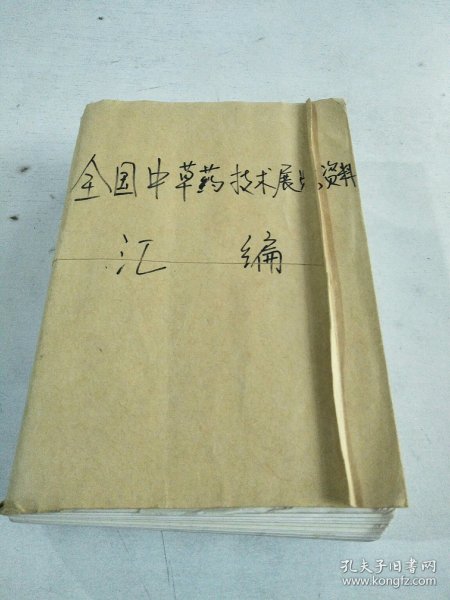 全国中草药技术展览资料
汇编
孔夫子旧书网
www.kongfz.com